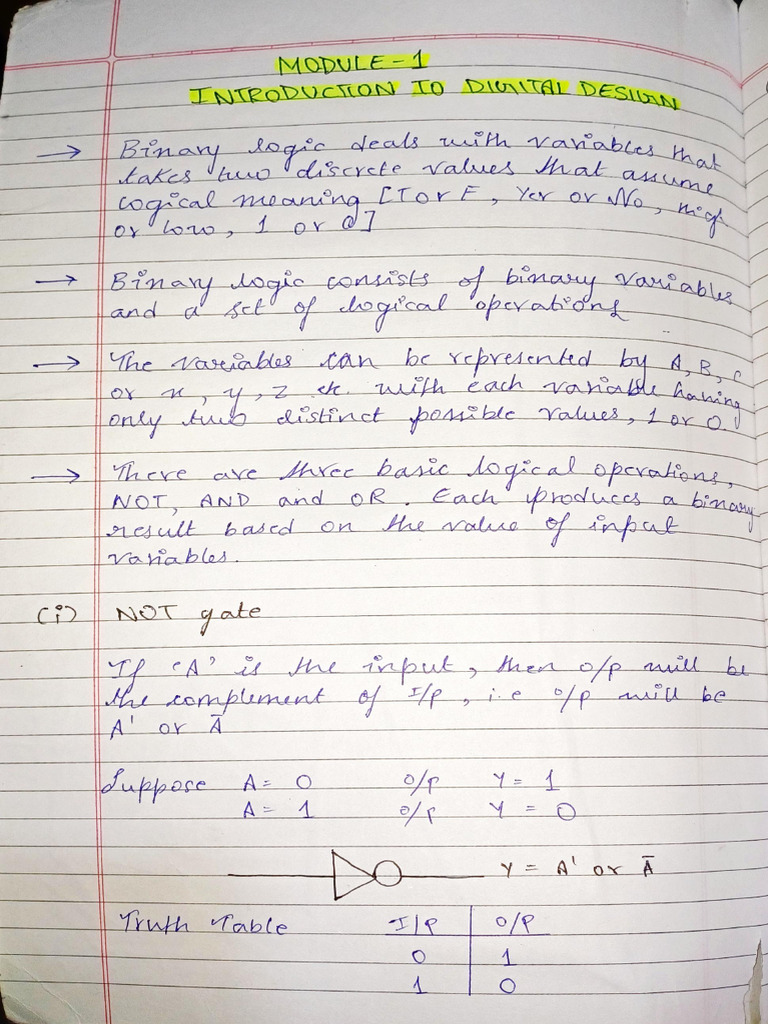 MODULE-1
INTRODUCTION TO DIGITAL DESIGN
→ Binary logic deals with variables that
takes two discrete values that assume
logical meaning [T or F, Yes or No, hig
or low, 1 or 0]
→ Binary logic consists of binary variables
and a set of logical operations
→ The variables can be represented by A, B, C
or x, y, z etc. with each variable having
only two distinct possible values, 1 or 0
→ There are three basic logical operations,
NOT, AND and OR. Each produces a binary
result based on the value of input
variables.
(i) NOT gate
If 'A' is the input, then o/p will be
the complement of I/p, i.e o/p will be
A' or Ā
Suppose A = 0 o/p Y = 1
A = 1 o/p Y = 0
Y = A' or Ā
Truth Table I/P O/P
0 1
1 0